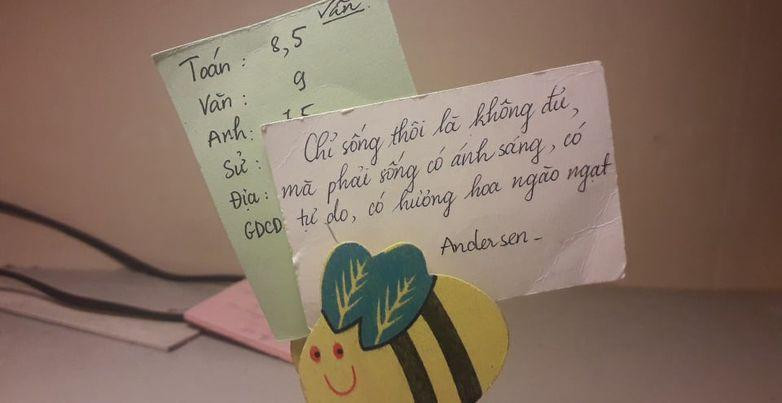 Văn
Toán: 8,5
Văn: 9
Anh:
Sử:
Địa:
GDCD
Chỉ sống thôi là không đủ,
mà phải sống có ánh sáng, có
tự do, có hương hoa ngào ngạt
Andersen-